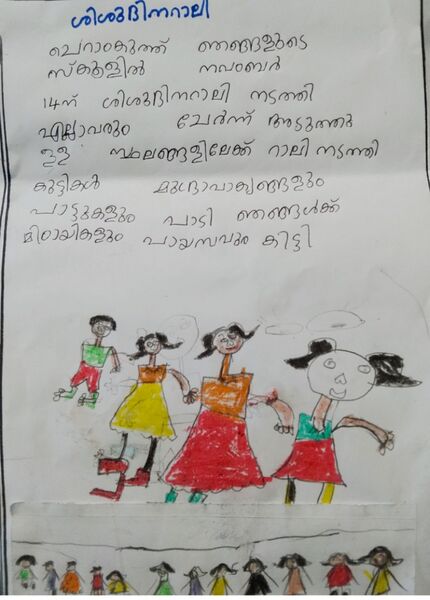 ശിശുദിനറാലി
ചെറാംകുത്ത് ഞങ്ങളുടെ
സ്കൂളിൽ നവംബർ
14ന് ശിശുദിനറാലി നടത്തി
എല്ലാവരും ചേർന്ന് അടുത്തു
ള്ള സ്ഥലങ്ങളിലേക്ക് റാലി നടത്തി
കുട്ടികൾ മുദ്രാവാക്യങ്ങളും
പാട്ടുകളും പാടി ഞങ്ങൾക്ക്
മിഠായികളും പായസവും കിട്ടി